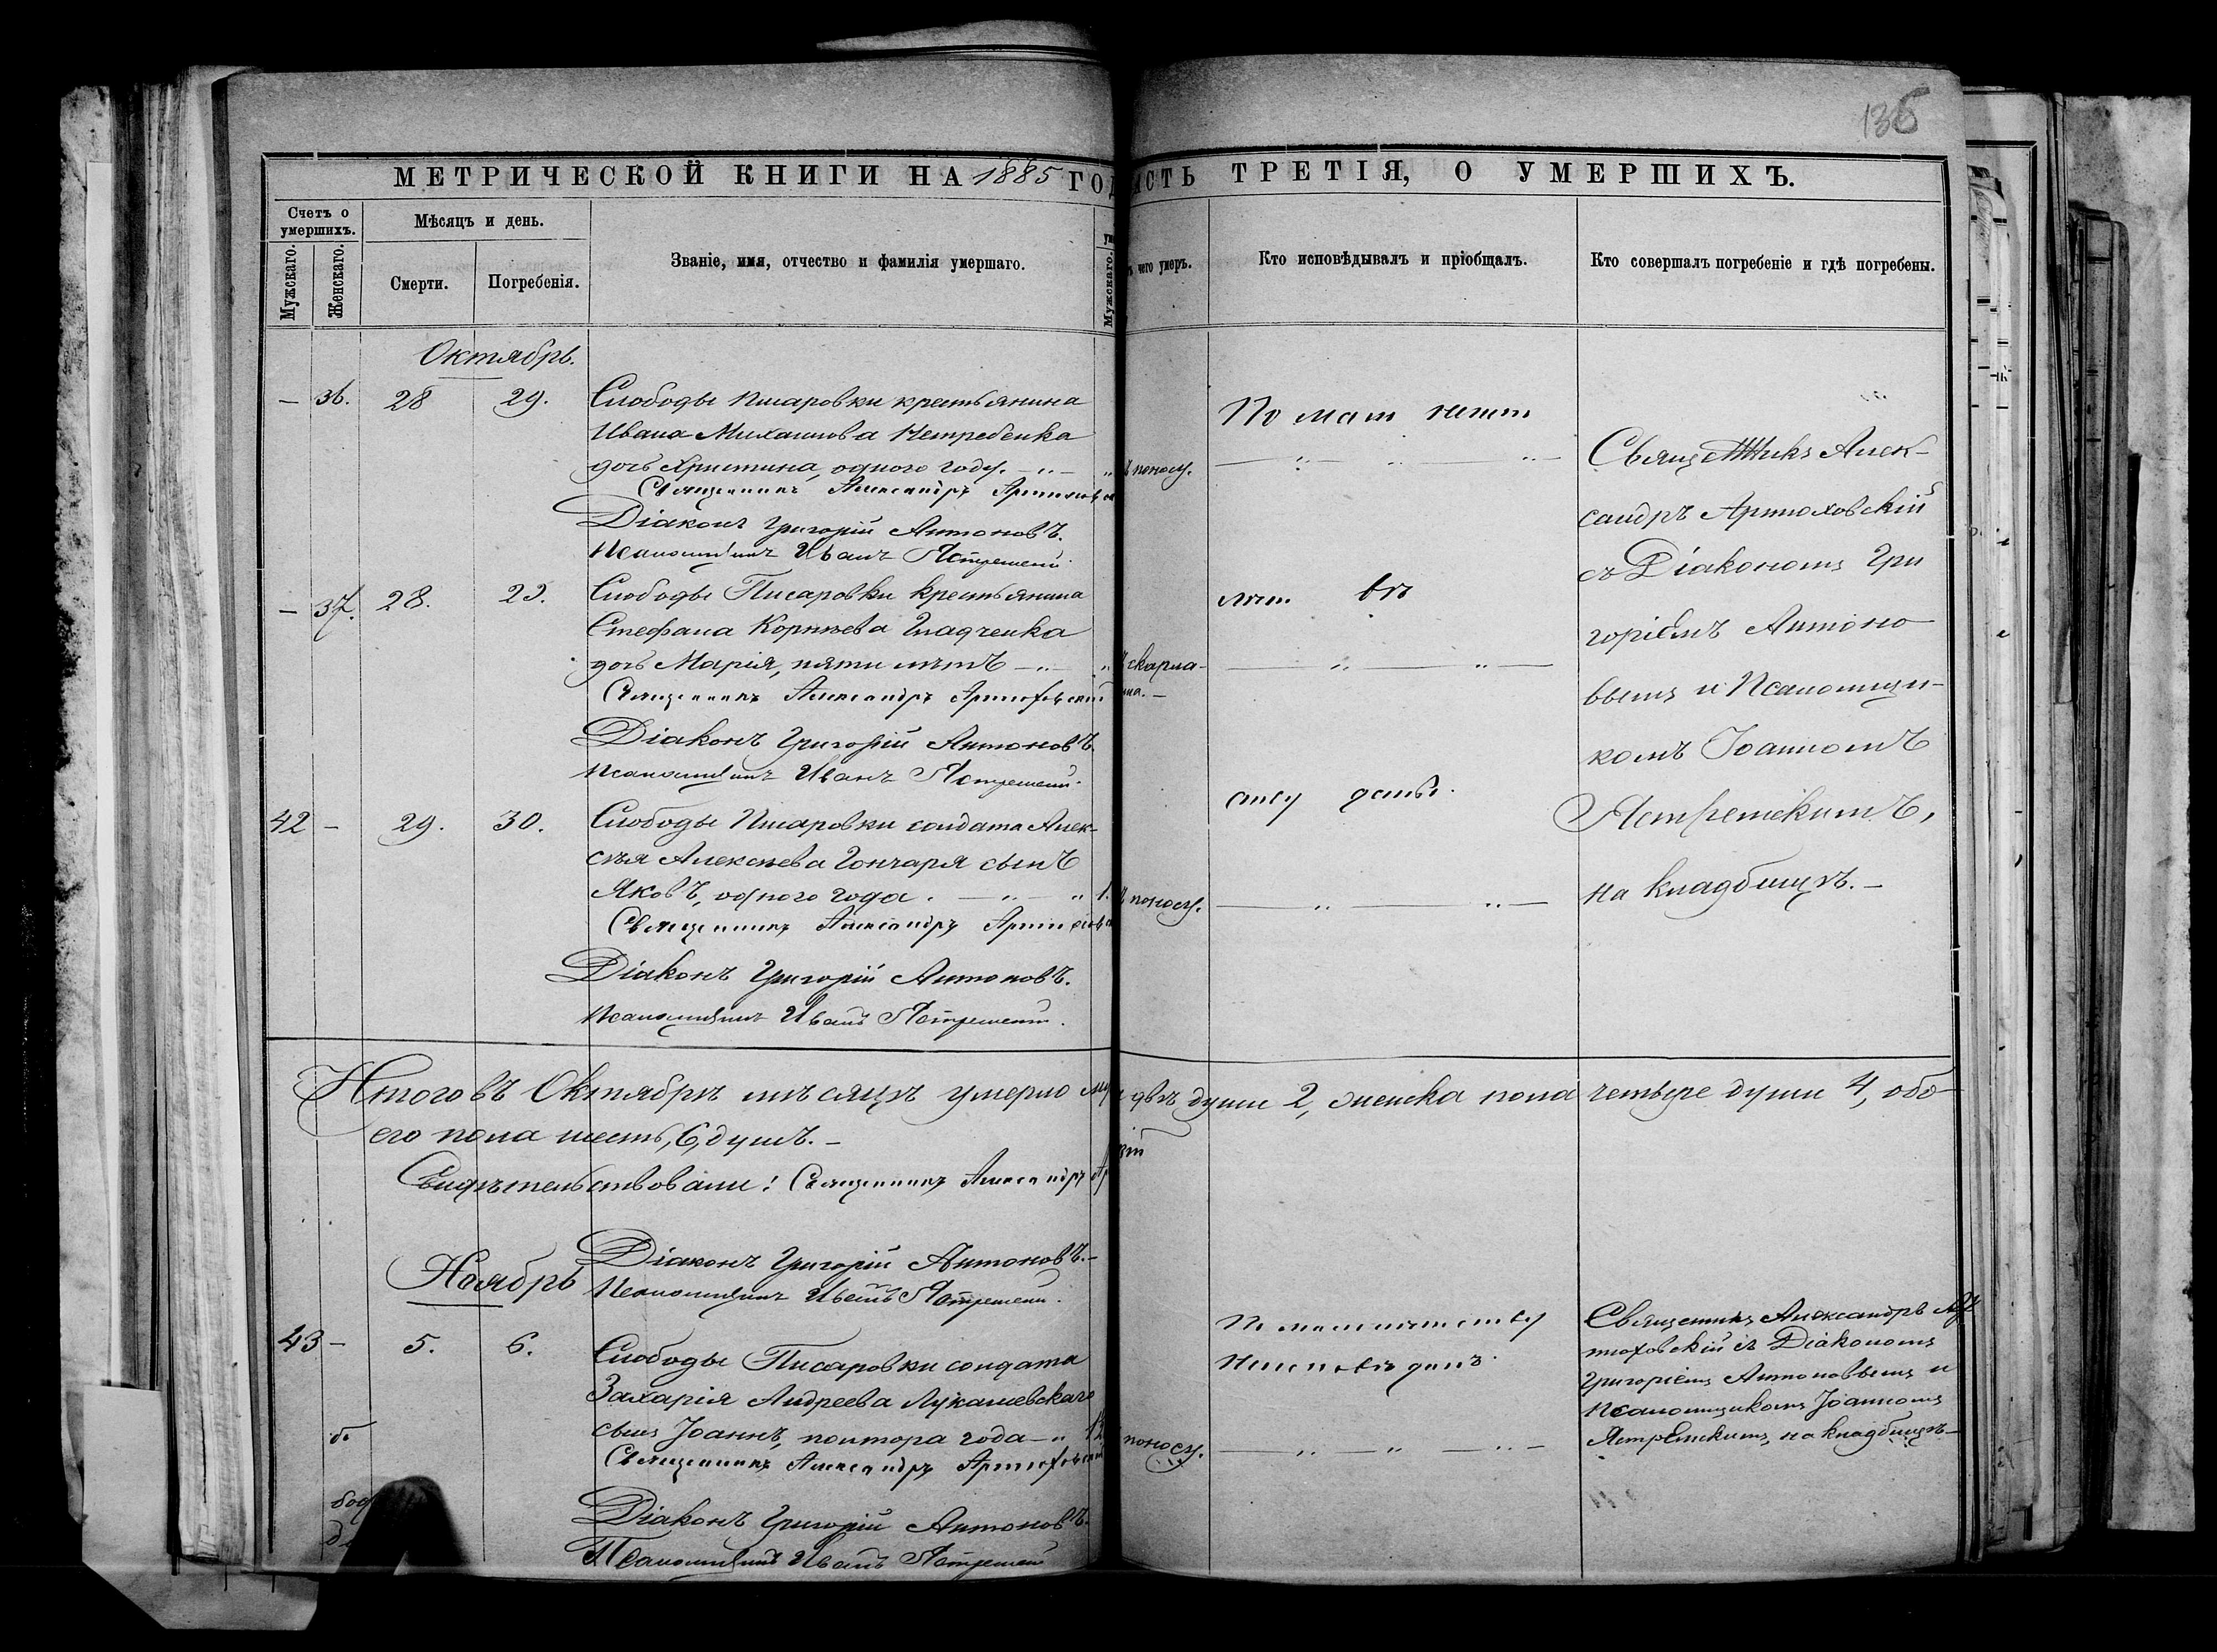 135
МЕТРИЧЕСКОЙ КНИГИ НА 1885 ГОД
АСТЬ ТРЕТІЯ, О УМЕРШИХЪ.
Счетъ о умершихъ.
Мужскаго.
Женскаго.
Мѣсяцъ и день.
Смерти.
Погребенія.
Званіе, имя, отчество и фамилія умершаго.
Мужскаго.
чего умеръ.
Кто исповѣдывалъ и пріобщалъ.
Кто совершалъ погребеніе и гдѣ погребены.
Октябрь.
— 36. 28 29. Слободы Писаровки крестьянина
Ивана Михаилова Нетребенка
дочь Христина, одного году.
Священникъ Александръ
Діаконъ Григорій Антоновъ.
Псаломщикъ Иванъ
поносу.
— 37. 28. 29. Слободы Писаровки крестьянина
Стефана Корнѣева Гладченка
дочь Марія, пяти лѣтъ
Священникъ Александръ Артюховскій
Діаконъ Григорій Антоновъ.
Псаломщикъ Иванъ
скарла-
тина.
42 — 29. 30. Слободы Писаровки солдата Алек-
сѣя Алексѣева Гончаря сынъ
Яковъ, одного года. 1.
Священникъ Александръ
Діаконъ Григорій Антоновъ.
Псаломщикъ Иванъ
поносу.
По мало лѣт
лѣт въ
ству данъ.
Священникъ Алек-
сандръ Артюховскій
съ Діакономъ Гри
горіемъ Антоно-
вымъ и Псаломщи-
комъ Іоанномъ
Ястремскимъ,
на кладбищѣ.
Итого въ Октябрѣ мѣсяцѣ умерло двѣ души 2, женска пола четыре души 4, обо-
его пола шесть, 6, душъ.
Свидѣтельствовали: Священникъ Александръ
Діаконъ Григорій Антоновъ.
Псаломщикъ Иванъ
Ноябрь
43 — 5. 6. Слободы Писаровки солдата
Захарія Андреева Лукашевскаго
сынъ Іоаннъ, полтора года
Священникъ Александръ Артюховскій
Діаконъ Григорій Антоновъ.
Псаломщикъ Иванъ
поносу.
По малолѣтству
Священникъ Александръ Ар
тюховскій съ Діакономъ
Григоріемъ Антоновымъ и
Псаломщикомъ Іоанномъ
Ястремскимъ, на кладбищѣ